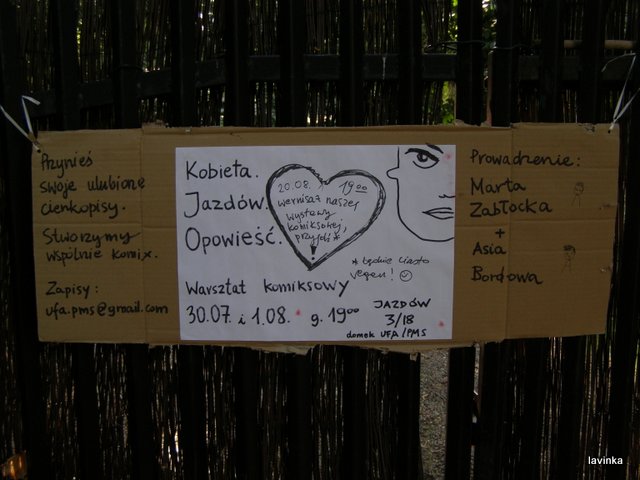 Przynieś
swoje ulubione
cienkopisy.
Stworzymy
wspólnie komix.
Zapisy:
ufa.pms@gmail.com
Kobieta.
Jazdów.
Opowieść.
20.08. 19⁰⁰
wernisaż naszej
wystawy
komiksowej,
przyjdź*
!
* będzie ciasto
vegan! ☺
Warsztat komiksowy
30.07. i 1.08. g. 19⁰⁰
JAZDÓW
3/18
domek UFA/PMS
Prowadzenie:
Marta
Zabłocka
+
Asia
Bordowa
lavinka